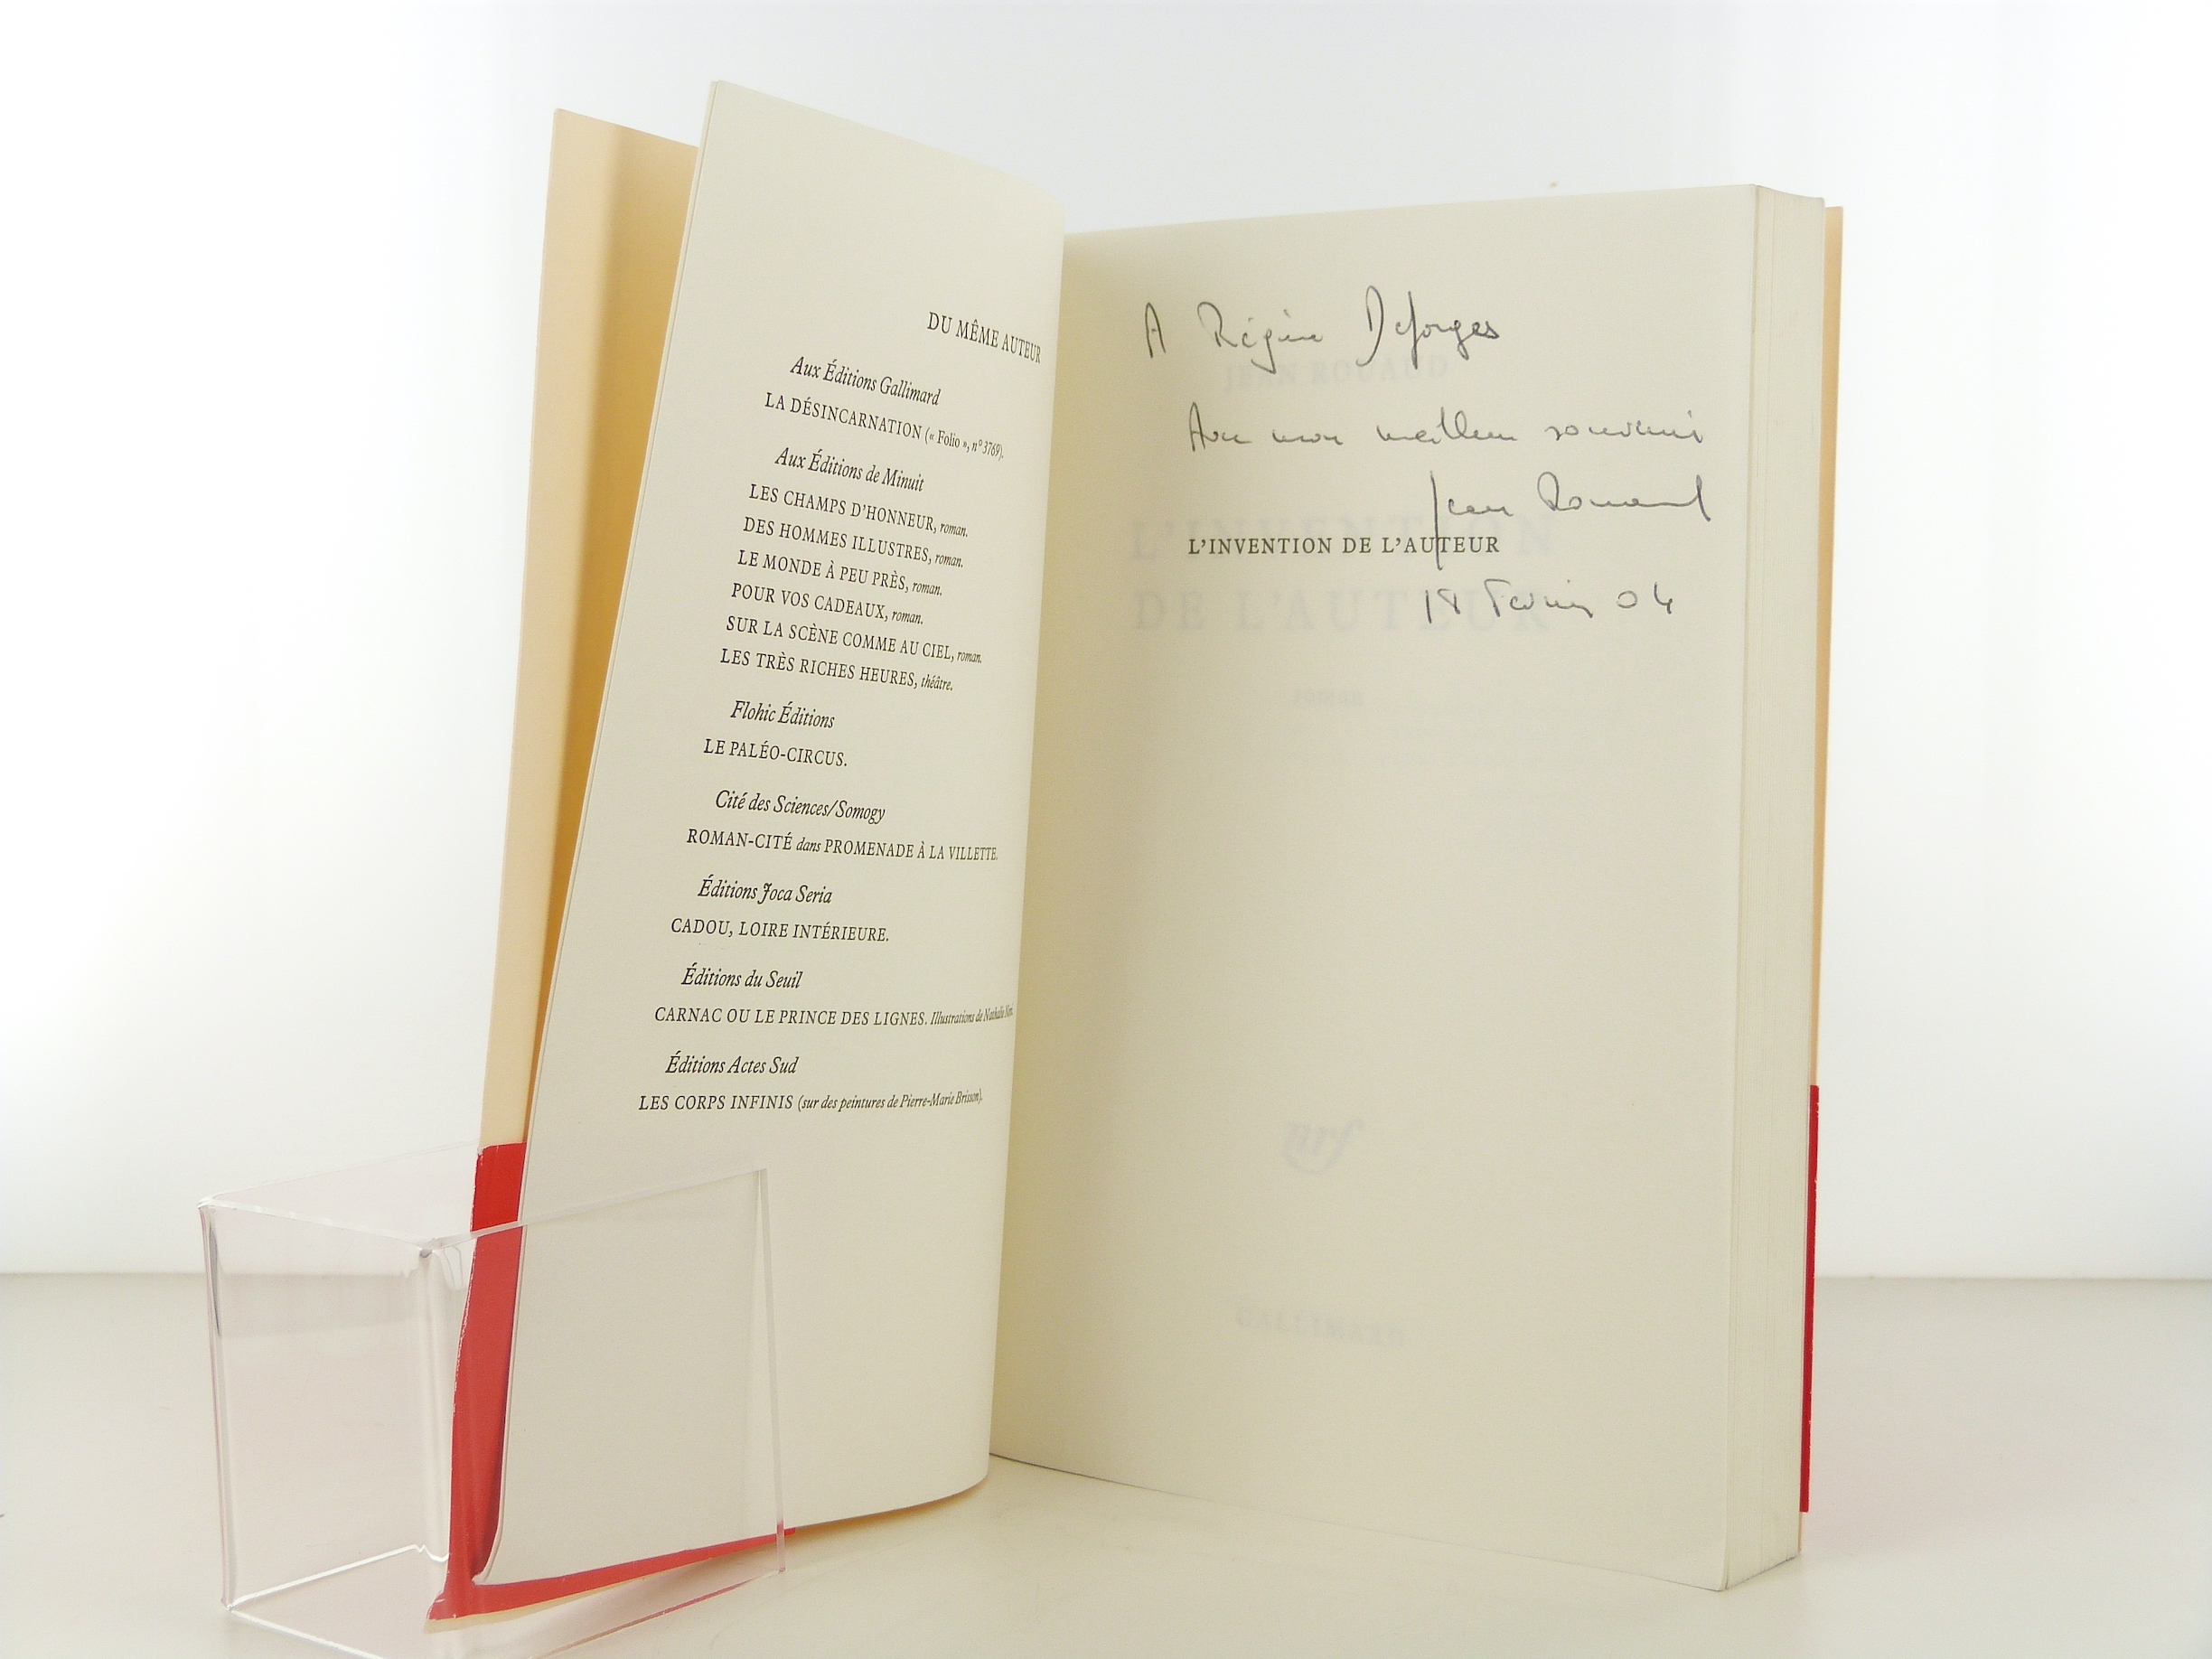 DU MÊME AUTEUR
Aux Éditions Gallimard
LA DÉSINCARNATION (« Folio », n° 3769).
Aux Éditions de Minuit
LES CHAMPS D'HONNEUR, roman.
DES HOMMES ILLUSTRES, roman.
LE MONDE À PEU PRÈS, roman.
POUR VOS CADEAUX, roman.
SUR LA SCÈNE COMME AU CIEL, roman.
LES TRÈS RICHES HEURES, théâtre.
Flohic Éditions
LE PALÉO-CIRCUS.
Cité des Sciences/Somogy
ROMAN-CITÉ dans PROMENADE À LA VILLETTE.
Éditions Joca Seria
CADOU, LOIRE INTÉRIEURE.
Éditions du Seuil
CARNAC OU LE PRINCE DES LIGNES. Illustrations de Nathalie
Éditions Actes Sud
LES CORPS INFINIS (sur des peintures de Pierre-Marie Brisson).
A Régine Deforges
Avec mon meilleur souvenir
Jean Rouaud
L'INVENTION DE L'AUTEUR
18 Février 04
JEAN ROUAUD
L'INVENTION
DE L'AUTEUR
roman
nrf
GALLIMARD